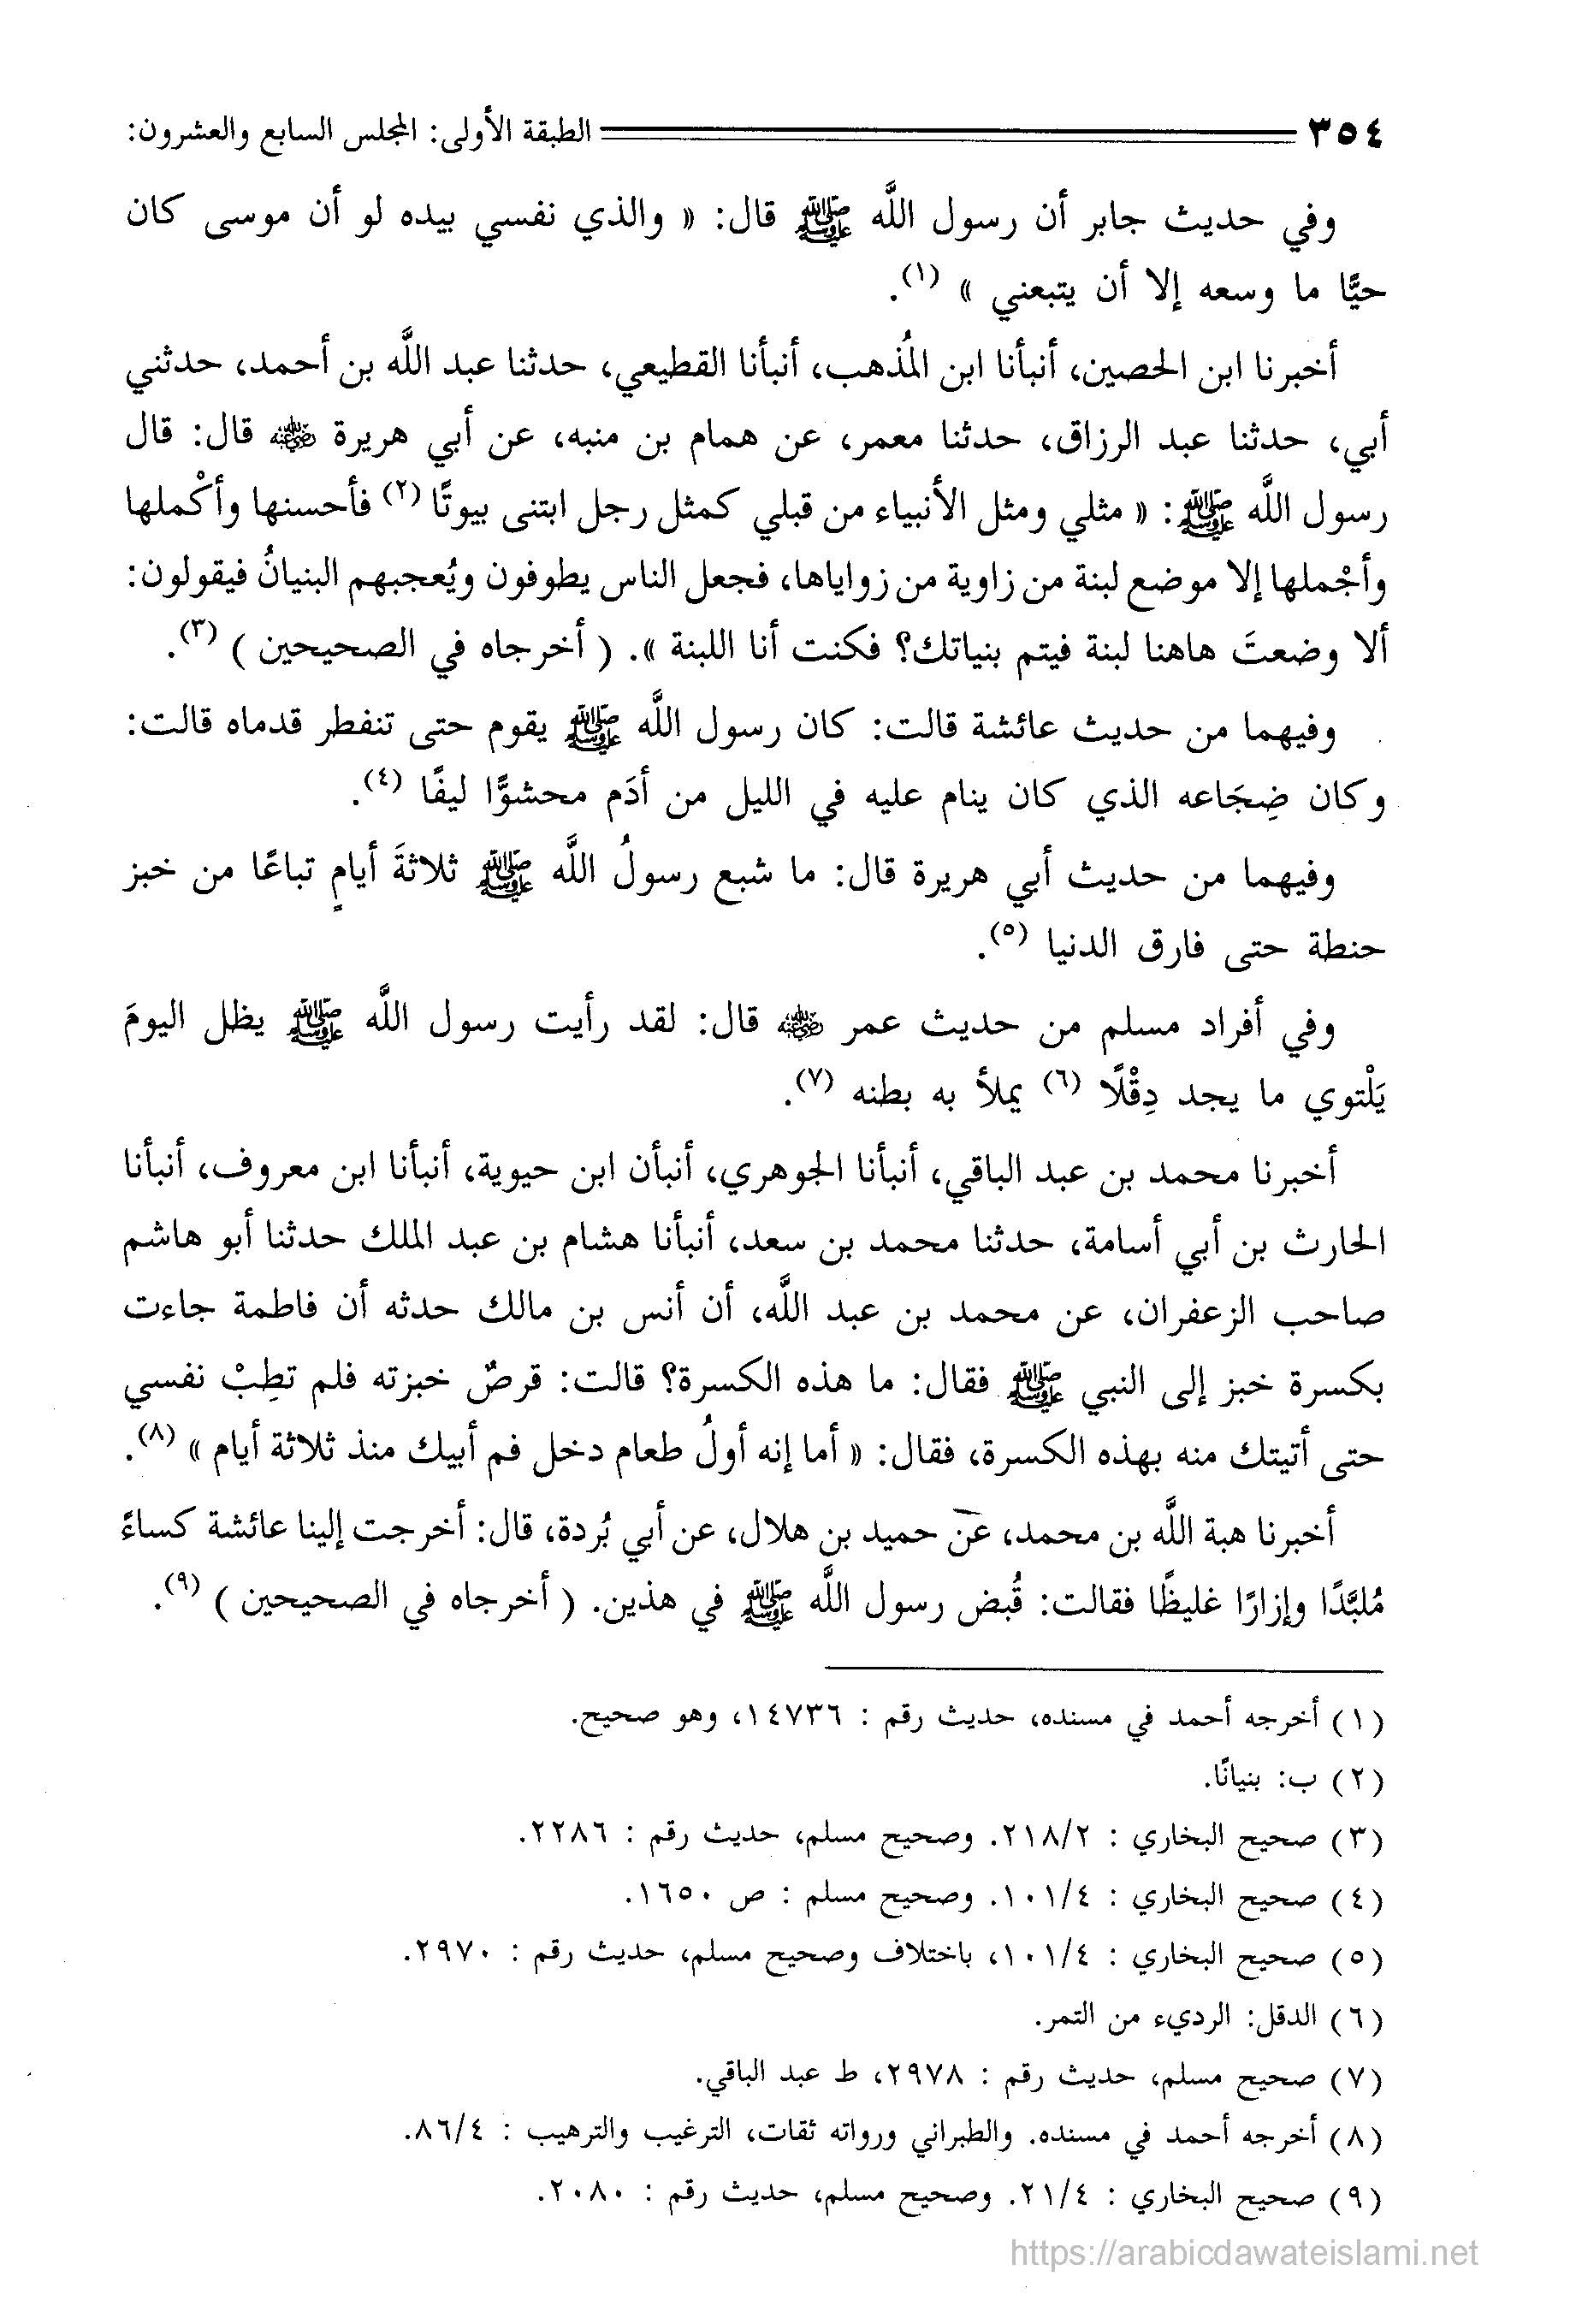 ٣٥٤ الطبقة الأولى: المجلس السابع والعشرون:
وفي حديث جابر أن رسول اللَّه ﷺ قال: « والذي نفسي بيده لو أن موسى كان
حيًّا ما وسعه إلا أن يتبعني » (١).
أخبرنا ابن الحصين، أنبأنا ابن المُذهب، أنبأنا القطيعي، حدثنا عبد اللَّه بن أحمد، حدثني
أبي، حدثنا عبد الرزاق، حدثنا معمر، عن همام بن منبه، عن أبي هريرة رضي الله عنه قال: قال
رسول اللَّه ﷺ: « مثلي ومثل الأنبياء من قبلي كمثل رجل ابتنى بيوتًا (٢) فأحسنها وأكْملها
وأجْملها إلا موضع لبنة من زاوية من زواياها، فجعل الناس يطوفون ويُعجبهم البنيانُ فيقولون:
ألا وضعتَ هاهنا لبنة فيتم بنياتك؟ فكنت أنا اللبنة ». ( أخرجاه في الصحيحين ) (٣).
وفيهما من حديث عائشة قالت: كان رسول اللَّه ﷺ يقوم حتى تنفطر قدماه قالت:
وكان ضِجَاعه الذي كان ينام عليه في الليل من أدَم محشوًّا ليفًا (٤).
وفيهما من حديث أبي هريرة قال: ما شبع رسولُ اللَّه ﷺ ثلاثةَ أيامٍ تباعًا من خبز
حنطة حتى فارق الدنيا (٥).
وفي أفراد مسلم من حديث عمر رضي الله عنه قال: لقد رأيت رسول اللَّه ﷺ يظل اليومَ
يَلْتوي ما يجد دِقْلًا (٦) يملأ به بطنه (٧).
أخبرنا محمد بن عبد الباقي، أنبأنا الجوهري، أنبأن ابن حيوية، أنبأنا ابن معروف، أنبأنا
الحارث بن أبي أسامة، حدثنا محمد بن سعد، أنبأنا هشام بن عبد الملك حدثنا أبو هاشم
صاحب الزعفران، عن محمد بن عبد اللَّه، أن أنس بن مالك حدثه أن فاطمة جاءت
بكسرة خبز إلى النبي ﷺ فقال: ما هذه الكسرة؟ قالت: قرصٌ خبزته فلم تطِبْ نفسي
حتى أتيتك منه بهذه الكسرة، فقال: « أما إنه أولُ طعام دخل فم أبيك منذ ثلاثة أيام » (٨).
أخبرنا هبة اللَّه بن محمد، عن حميد بن هلال، عن أبي بُردة، قال: أخرجت إلينا عائشة كساءً
مُلبَّدًا وإزارًا غليظًا فقالت: قُبض رسول اللَّه ﷺ في هذين. ( أخرجاه في الصحيحين ) (٩).
(١) أخرجه أحمد في مسنده، حديث رقم : ١٤٧٣٦، وهو صحيح.
(٢) ب: بنيانًا.
(٣) صحيح البخاري : ٢١٨/٢. وصحيح مسلم، حديث رقم : ٢٢٨٦.
(٤) صحيح البخاري : ١٠١/٤. وصحيح مسلم : ص ١٦٥٠.
(٥) صحيح البخاري : ١٠١/٤، باختلاف وصحيح مسلم، حديث رقم : ٢٩٧٠.
(٦) الدقل: الرديء من التمر.
(٧) صحيح مسلم، حديث رقم : ٢٩٧٨، ط عبد الباقي.
(٨) أخرجه أحمد في مسنده. والطبراني ورواته ثقات، الترغيب والترهيب : ٨٦/٤.
(٩) صحيح البخاري : ٢١/٤. وصحيح مسلم، حديث رقم : ٢٠٨٠.
https://arabicdawateislami.net